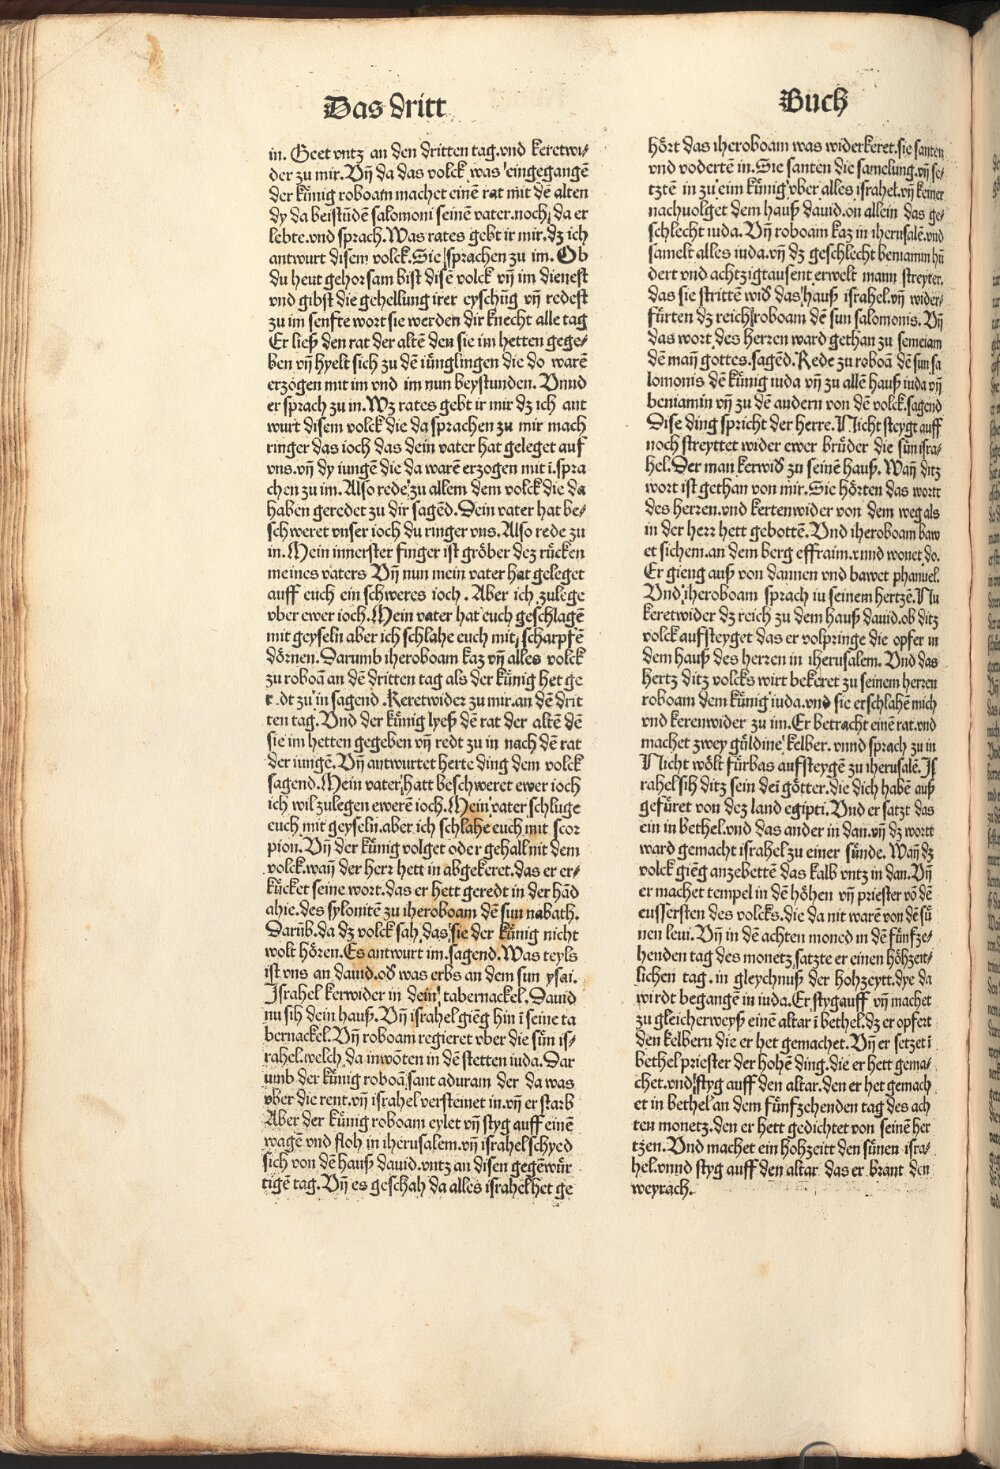 Das dritt
Buch
in. Geet vntz an den dritten tag.vnd keretwi⸗
der zu mir. Vñ da das volck was eingegangē
der künig roboam machet einē rat mit dē alten
dy da beistūdē salomoni seinē vater.noch da er
lebte.vnd sprach.Was rates gebt ir mir.dz ich
antwurt disem volck.Sie sprachen zu im. Ob
du heut gehorsam bist disē volck vñ im dienest
vnd gibst die gehellung irer eyschūg vñ redest
zu im senfte wort sie werden dir knecht alle tag
Er ließ den rat der altē den sie im hetten gege⸗
ben vñ hyelt sich zu dē iünglingen die do warē
erzogen mit im vnd im nun beystunden. Vnnd
er sprach zu in.Wz rates gebt ir mir dz ich ant
wurt disem volck die da sprachen zu mir mach
ringer das ioch das dein vater hat geleget auf
vns.vñ dy iungē die da warē erzogen mit ī.spra
chen zu im.Also rede zu allem dem volck die da
haben geredet zu dir sagēd.Dein vater hat be⸗
schweret vnser ioch du ringer vns.Also rede zu
in.Mein innerster finger ist gröber dez rücken
meines vaters Vñ nun mein vater hat geleget
auff euch ein schweres ioch. Aber ich zulege
vber ewer ioch.Mein vater hat euch geschlagē
mit geyseln aber ich schlahe euch mit scharpfē
dörnen.Darumb iheroboam kaz vñ alles volck
zu roboā an dē dritten tag als der künig het ge
r dt zu in sagend .Keretwider zu mir.an dē drit
ten tag.Vnd der künig lyeß dē rat der altē dē
sie im hetten gegeben vñ redt zu in nach dē rat
der iungē.Vñ antwurtet herte ding dem volck
sagend.Mein vater hatt beschweret ewer ioch
ich wil zulegen ewerē ioch.Mein vater schluge
euch mit geyseln.aber ich schlahe euch mit scor
pion.Vñ der künig volget oder gehall nit dem
volck.wañ der herr hett in abgekeret.das er er⸗
kücket seine wort.das er hett geredt in der hād
ahie.des sylonitē zu iheroboam dē sun nabath.
Darūb.da dz volck sah das sie der künig nicht
wolt hören.Es antwurt im.sagend.Was teyls
ist vns an dauid.oď was erbs an dem sun ysai.
Israhel kerwider in dein tabernackel.Dauid
nu sih dein hauß.Vñ israhel giēg hin ī seine ta
bernackel.Vñ roboam regieret vber die sün is⸗
rahel.welch da inwōten in dē stetten iuda.Dar
umb der künig roboā sant aduram der da was
vber die rent.vñ israhel versteinet in.vñ er starb
Aber der künig roboam eylet vñ styg auff einē
wagē vnd floh in iherusalem.vñ israhel schyed
sich von dē hauß dauid.vntz an disen gegēwür
tigē tag.Vñ es geschah da alles israhel het ge
hört das iheroboam was widerkeret.sie santen
vnd vodertē in.Sie santen die samelung.vñ se⸗
tztē in zu eim künig vber alles israhel.vñ keiner
nachuolget dem hauß dauid.on allein das ge⸗
schlecht iuda. Vñ roboam kaz in iherusalē.vnd
samelt alles iuda.vñ dz geschlecht beniamin hū
dert vnd achtzigtausent erwelt mann streyter.
das sie strittē wiď das hauß israhel.vñ wider⸗
fürten dz reich roboam dē sun salomonis. Vñ
das wort des herren ward gethan zu semeiam
dē mañ gottes.sagēd.Rede zu roboā dē sun sa
lomonis dē künig iuda vñ zu allē hauß iuda vñ
beniamin vñ zu dē andern von dē volck.sagend
Dise ding spricht der herre.Nicht steygt auff
noch streyttet wider ewer brüder die sün isra⸗
hel.Der man kerwiď zu seinē hauß. Wañ ditz
wort ist gethan von mir.Sie hörten das wortt
des herren.vnd kertenwider von dem weg als
in der herr hett gebottē.Vnd iheroboam baw
et sichem.an dem berg effraim.vnnd wonet do.
Er gieng auß von dannen vnd bawet phanuel.
Vnd iheroboam sprach in seinem hertzē.Nu
keretwider dz reich zu dem hauß dauid.ob ditz
volck aufsteyget das er volpringe die opfer in
dem hauß des herren in iherusalem. Vnd das
hertz ditz volcks wirt bekeret zu seinem herren
roboam dem künig iuda.vnd sie erschlahē mich
vnd kerenwider zu im.Er betracht einē rat.vnd
machet zwey güldine kelber. vnnd sprach zu in
Nicht wölt fürbas aufsteygē zu iherusalē.Is
rahel sih ditz sein dei götter.die dich habē auß
gefüret von dez land egipti.Vnd er satzt das
ein in bethel.vnd das ander in dan.vñ dz wortt
ward gemacht israhel zu einer sünde. Wañ dz
volck giēg anzebettē das kalb vntz in dan.Vñ
er machet tempel in dē höhen vñ priester vō dē
eussersten des volcks.die da nit warē von dē sü
nen leui.Vñ in dē achten moned in dē fünfze⸗
henden tag des monetz satzte er einen höhzeit⸗
lichen tag. in gleychnuß der hohzeytt.dye da
wirdt begangē in iuda.Er styg auff vñ machet
zu gleicherweyß einē altar ī bethel.dz er opfert
den kelbern die er het gemachet.Vñ er setzet ī
bethel priester der hohē ding.die er hett gema⸗
chet.vnd styg auff den altar.den er het gemach
et in bethel an dem fünfzehenden tag des ach
ten monetz.den er hett gedichtet von seinē her
tzen.Vnd machet ein hohzeitt den sünen isra⸗
hel.vnnd styg auff den altar das er brant den
weyrach.